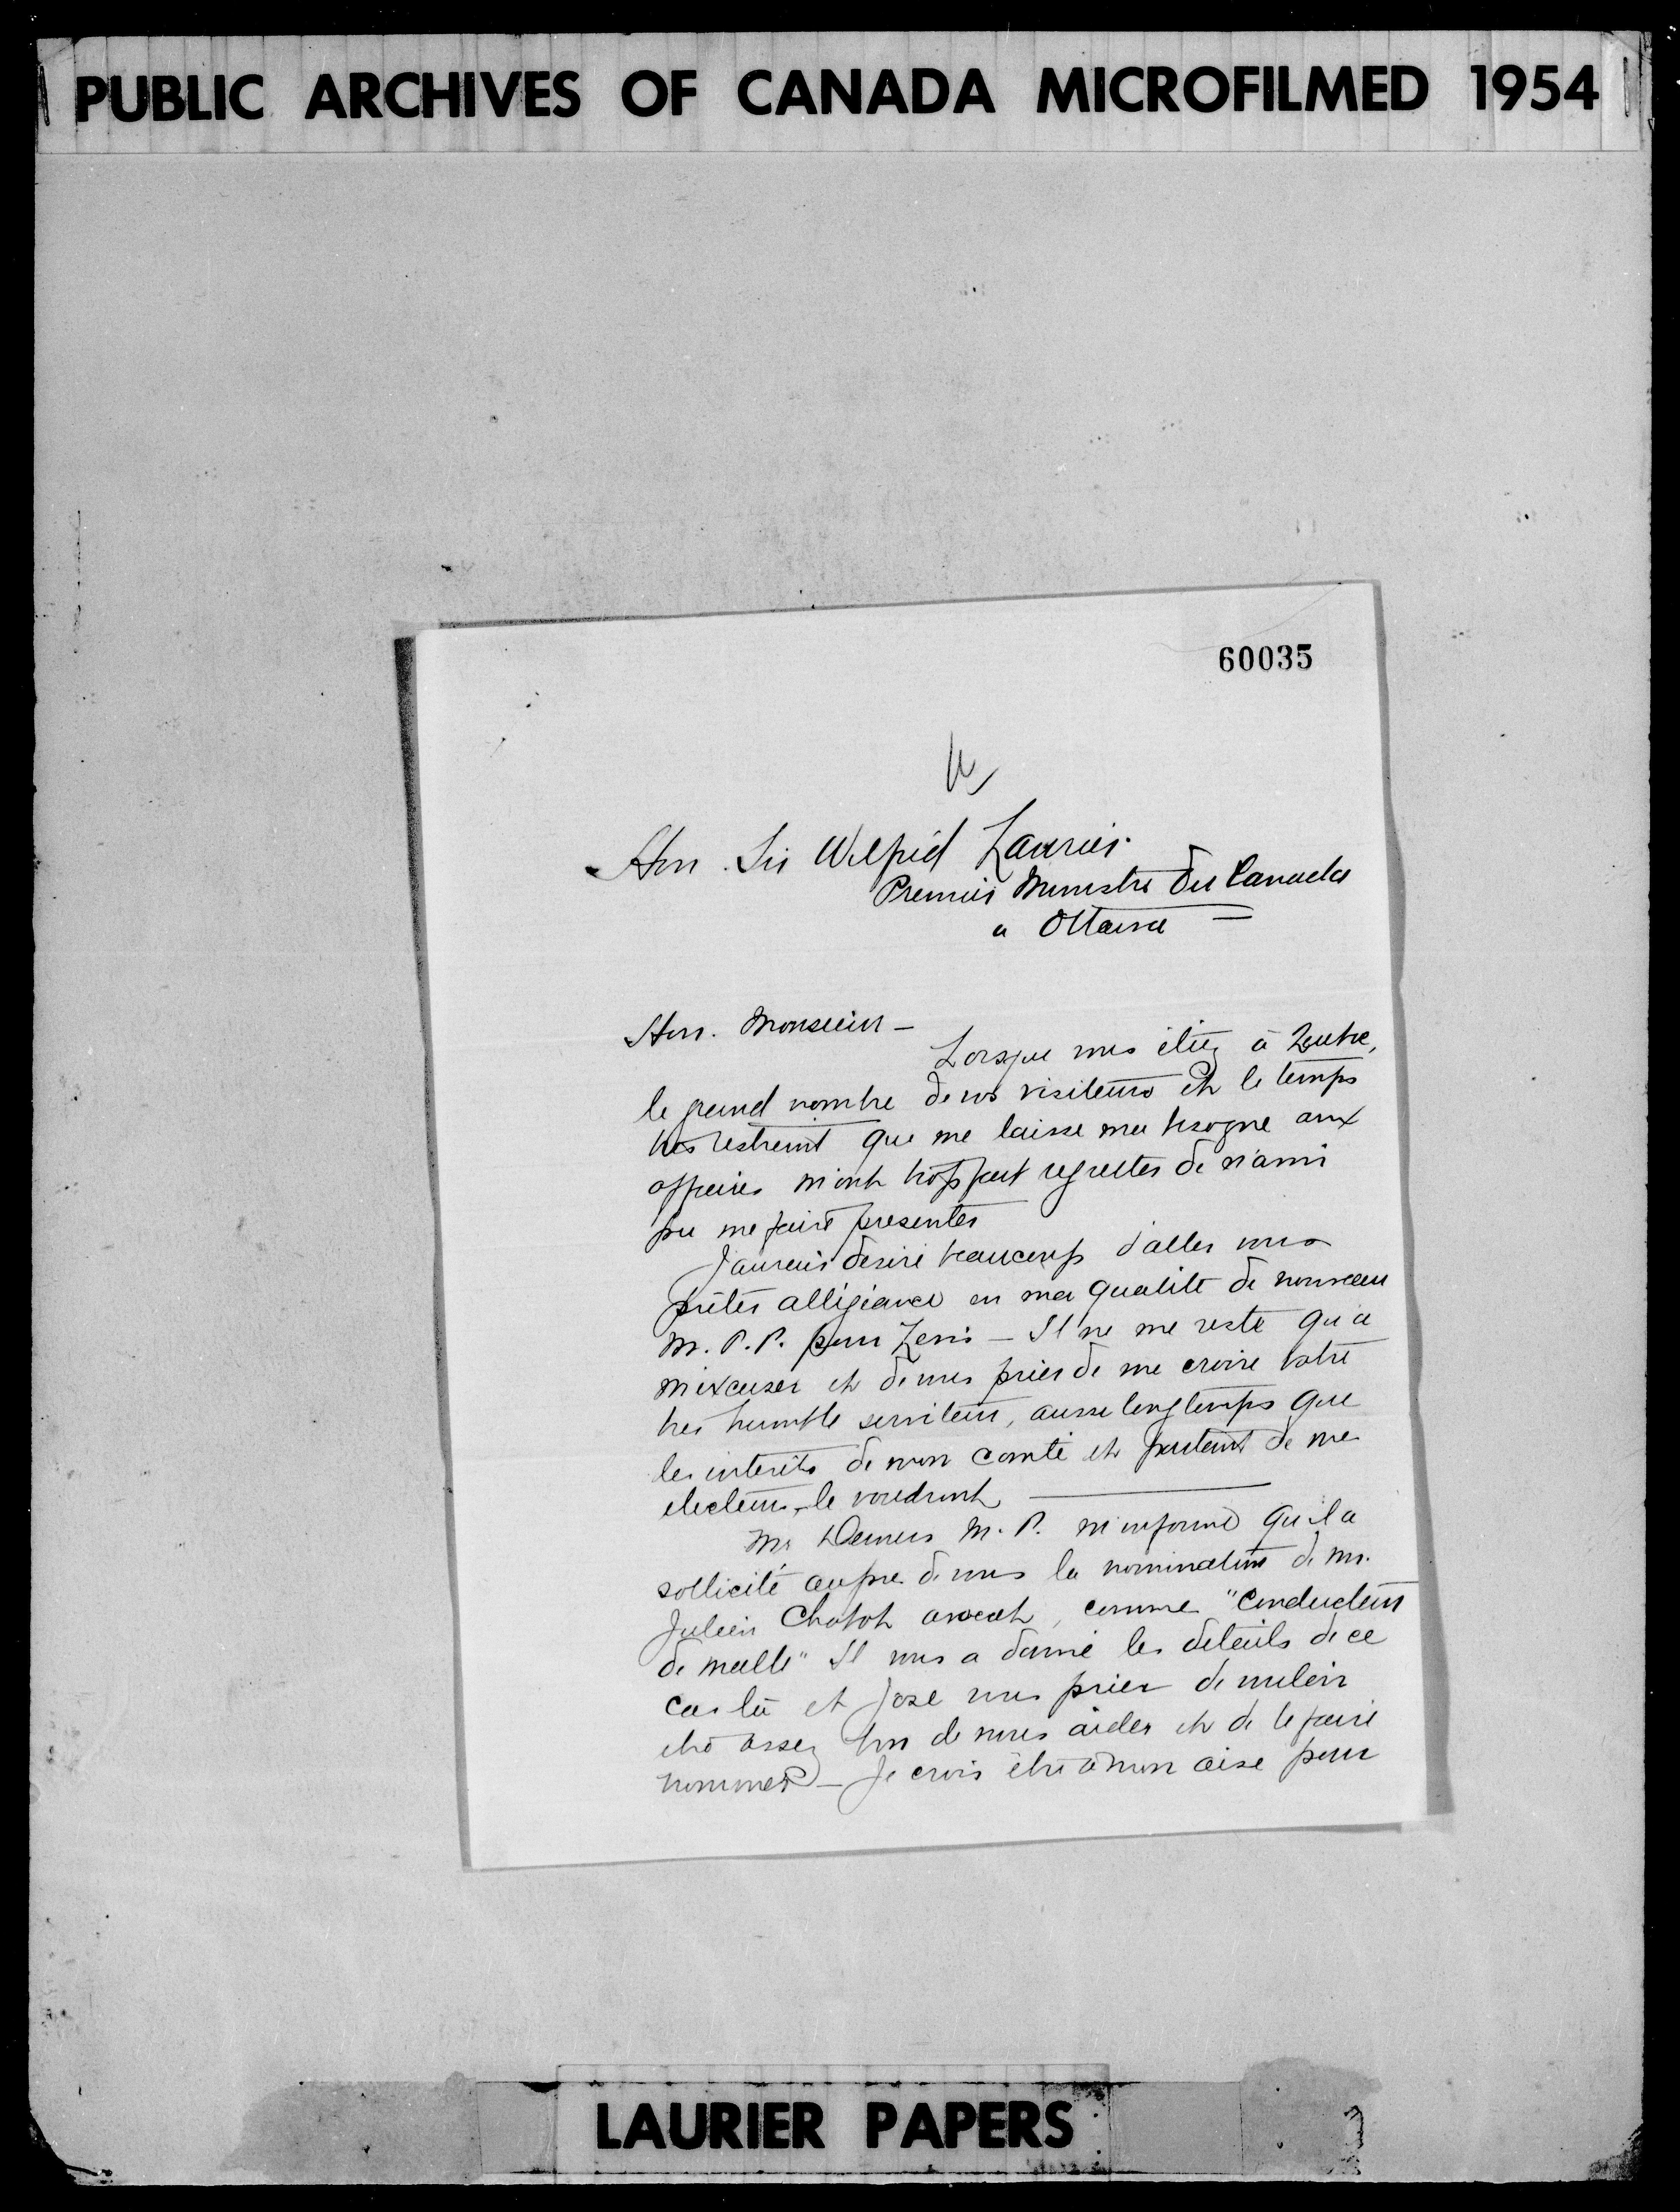 PUBLIC ARCHIVES OF CANADA MICROFILMED 1954
60035
Hon. Sir Wilfrid Laurier.
Premier Ministre du Canada
a Ottawa
Hon. Monsieur -
Lorsque vous étiez à
le grand nombre de vos visiteurs et le temps
très restreint que me laisse ma besogne aux
affaires m'ont fait regretter de n'avoir
pu me faire presenter
J'aurais desiré beaucoup d'aller vous
prêter allégiance en ma qualité de nouveau
M. P. P. pour Levis - Il ne me reste qu'a
m'excuser et de vous prier de me croire votre
tres humble serviteur, aussi longtemps que
les interêts de mon comté et partant de mes
electeurs le voudront
Mr Demers M. P. m'informe qu'il a
sollicité aupres de vous la nomination de Mr.
Julien Chabot avocat, comme "Conducteur
de malle" Il vous a donné les details de ce
cas là et j'ose vous prier de vouloir
etre assez bon de nous aider et de le faire
nommer - Je crois être à mon aise pour
LAURIER PAPERS